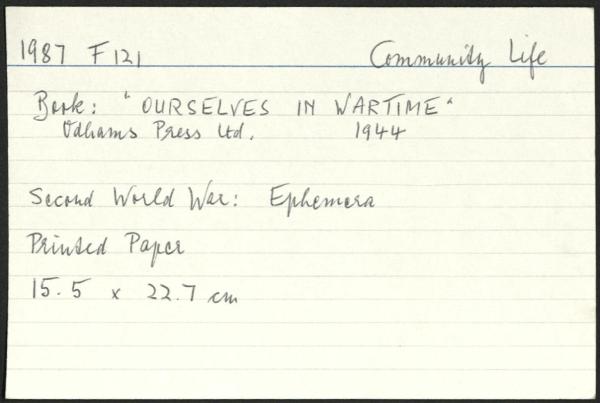 1987 F121 Community Life
Book: "OURSELVES IN WARTIME"
Odhams Press Ltd. 1944
Second World War: Ephemera
Printed Paper
15.5 x 22.7 cm